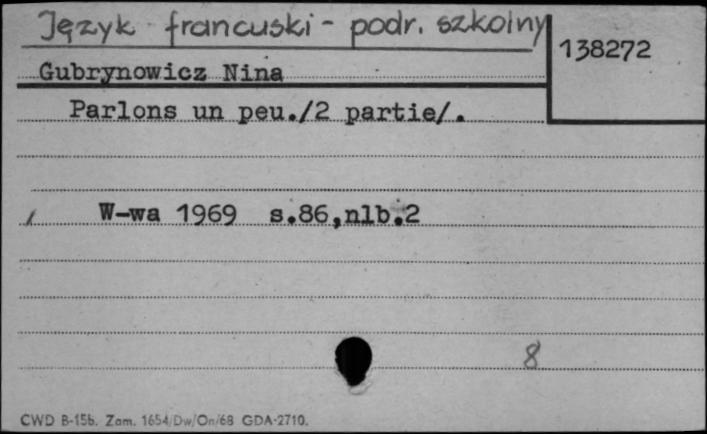 Język francuski - podr. szkolny
138272
Gubrynowicz Nina
Parlons un peu./2 partie/.
W-wa 1969 s.86,nlb.2
8
CWD B-15b. Zam. 1654/Dw/On/68 GDA-2710.